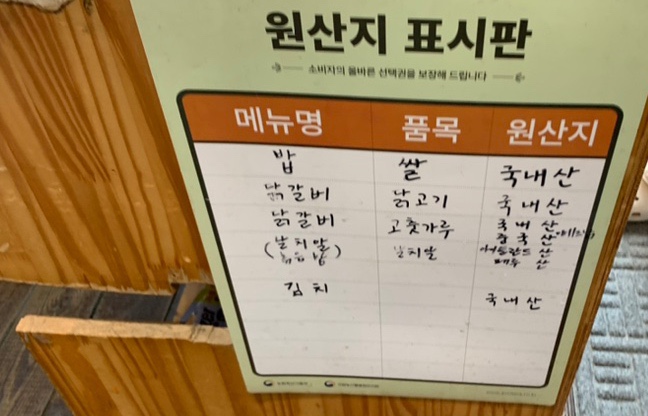 원산지 표시판
소비자의 올바른 선택권을 보장해 드립니다
메뉴명 품목 원산지
밥 쌀 국내산
닭갈비 닭고기 국내산
닭갈비 고춧가루 국내산
중국산
(날치알 날치알
볶음밥) 산
김치 국내산